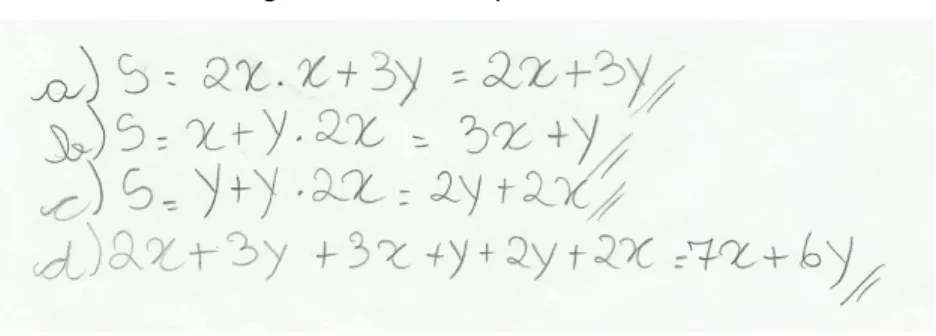 a) S = 2x . x + 3y = 2x + 3y //
b) S = x + y . 2x = 3x + y //
c) S = y + y . 2x = 2y + 2x //
d) 2x + 3y + 3x + y + 2y + 2x = 7x + 6y //